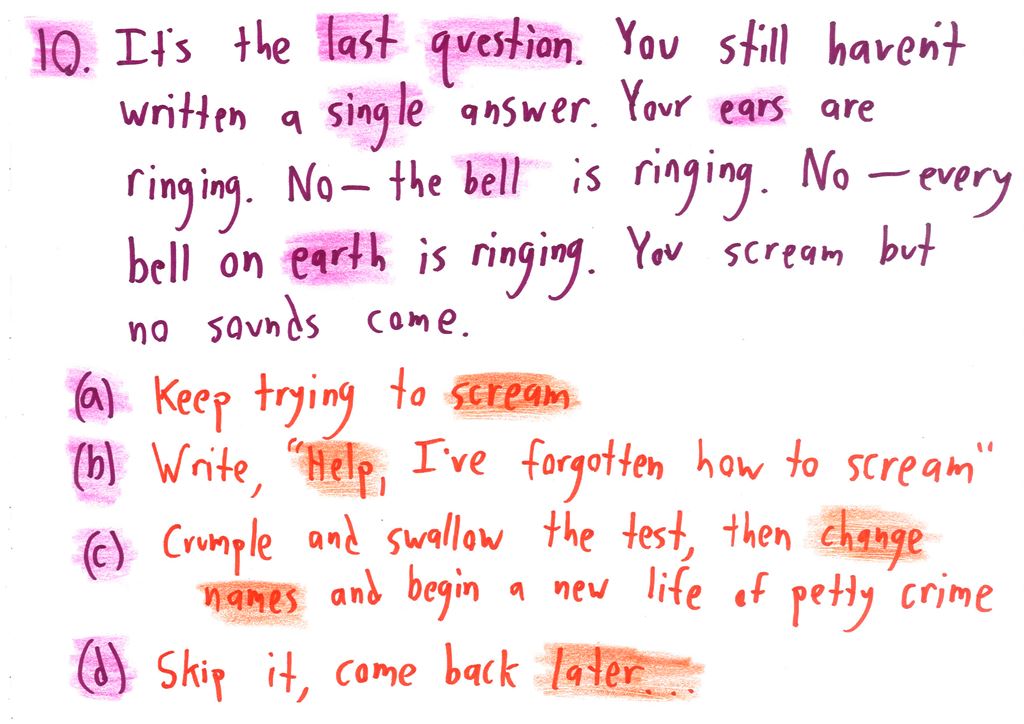 10. It's the last question. You still haven't
written a single answer. Your ears are
ringing. No — the bell is ringing. No — every
bell on earth is ringing. You scream but
no sounds come.
(a) Keep trying to scream
(b) Write, "Help, I've forgotten how to scream"
(c) Crumple and swallow the test, then change
names and begin a new life of petty crime
(d) Skip it, come back later....